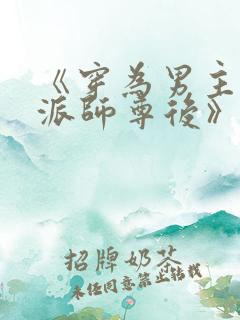 《穿為男主
派師尊後》
招牌奶茶
未經同意禁止轉載